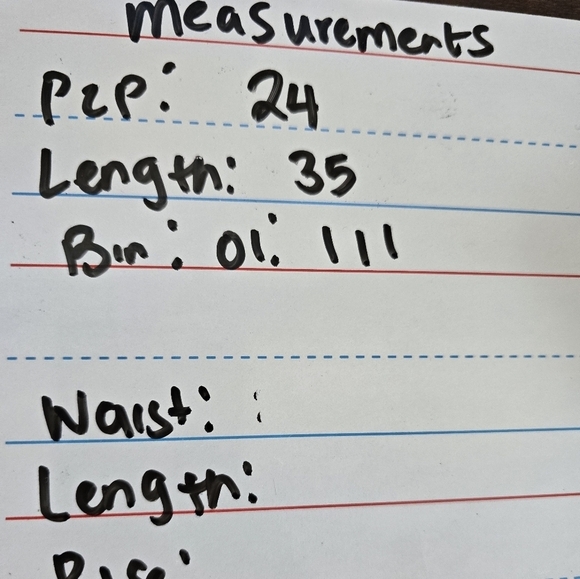 measurements
P2P: 24
Length: 35
Bin: 01: 111
Waist: :
Length:
Rise: